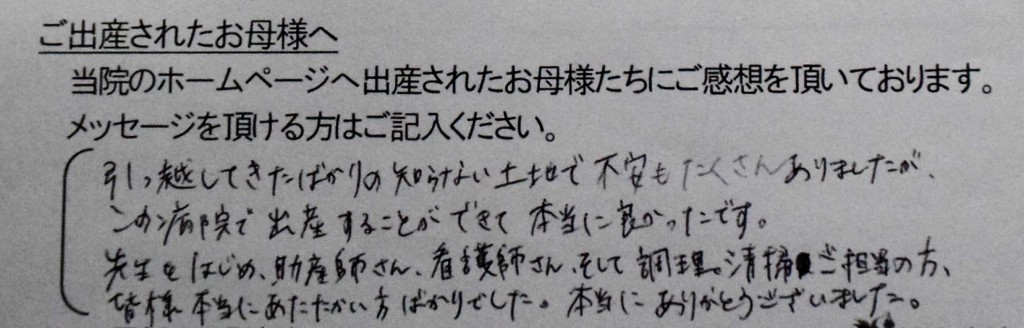 ご出産されたお母様へ
当院のホームページへ出産されたお母様たちにご感想を頂いております。
メッセージを頂ける方はご記入ください。
引っ越してきたばかりの知らない土地で不安もたくさんありましたが、
この病院で出産することができて本当に良かったです。
先生をはじめ、助産師さん、看護師さん、そして調理。清掃ご担当の方、
皆様本当にあたたかい方ばかりでした。本当にありがとうございました。